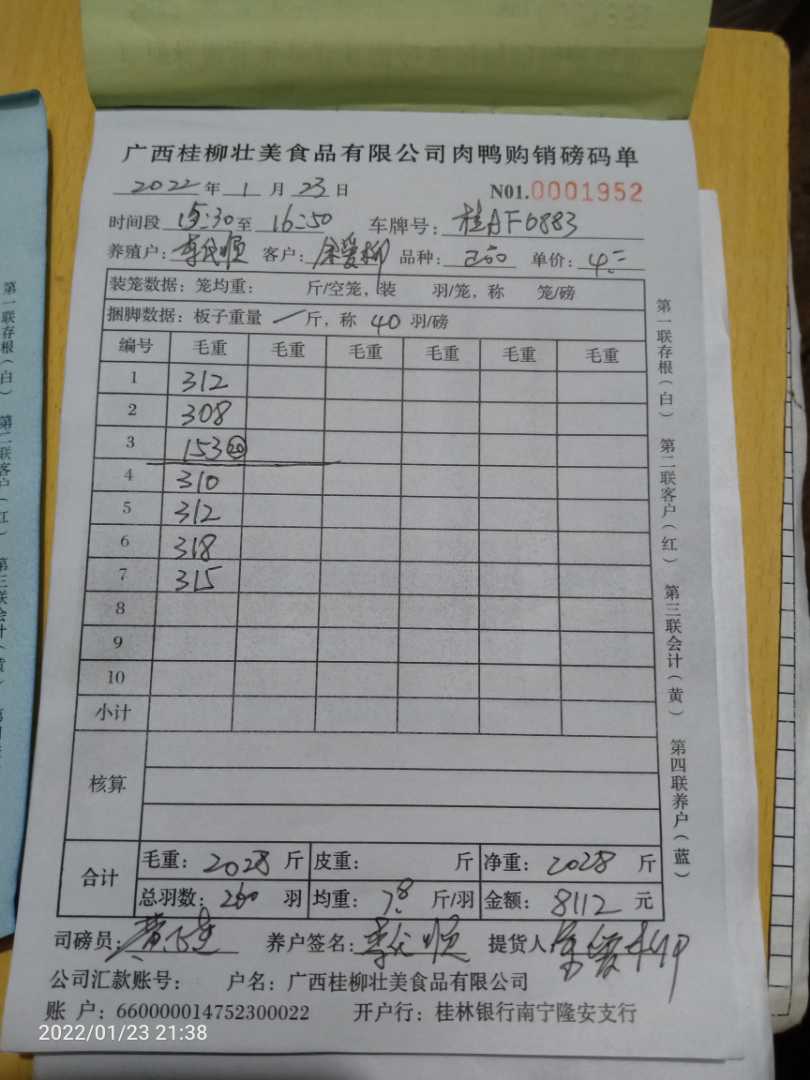 广西桂柳壮美食品有限公司肉鸭购销磅码单
2022年1月23日 N01.0001952
时间段 15:30至16:50 车牌号: 桂AF0883
养殖户: 李氏顺 客户: 余爱柳 品种: 单价: 4.=
装笼数据: 笼均重: 斤/空笼, 装 羽/笼, 称 笼/磅
捆脚数据: 板子重量 / 斤, 称 40 羽/磅
编号 毛重 毛重 毛重 毛重 毛重 毛重
1 312
2 308
3 153 20
4 310
5 312
6 318
7 315
8
9
10
小计
核算
合计 毛重: 2028 斤 皮重: 斤 净重: 2028 斤
总羽数: 260 羽 均重: 7.8 斤/羽 金额: 8112 元
司磅员: 养户签名: 李氏顺 提货人: 余爱柳
公司汇款账号: 户名: 广西桂柳壮美食品有限公司
账 户: 660000014752300022 开户行: 桂林银行南宁隆安支行
第一联存根(白) 第二联客户(红) 第三联会计(黄) 第四联养户(蓝)
第一联存根(白) 第二联客户(红) 第三联会计(黄)
2022/01/23 21:38